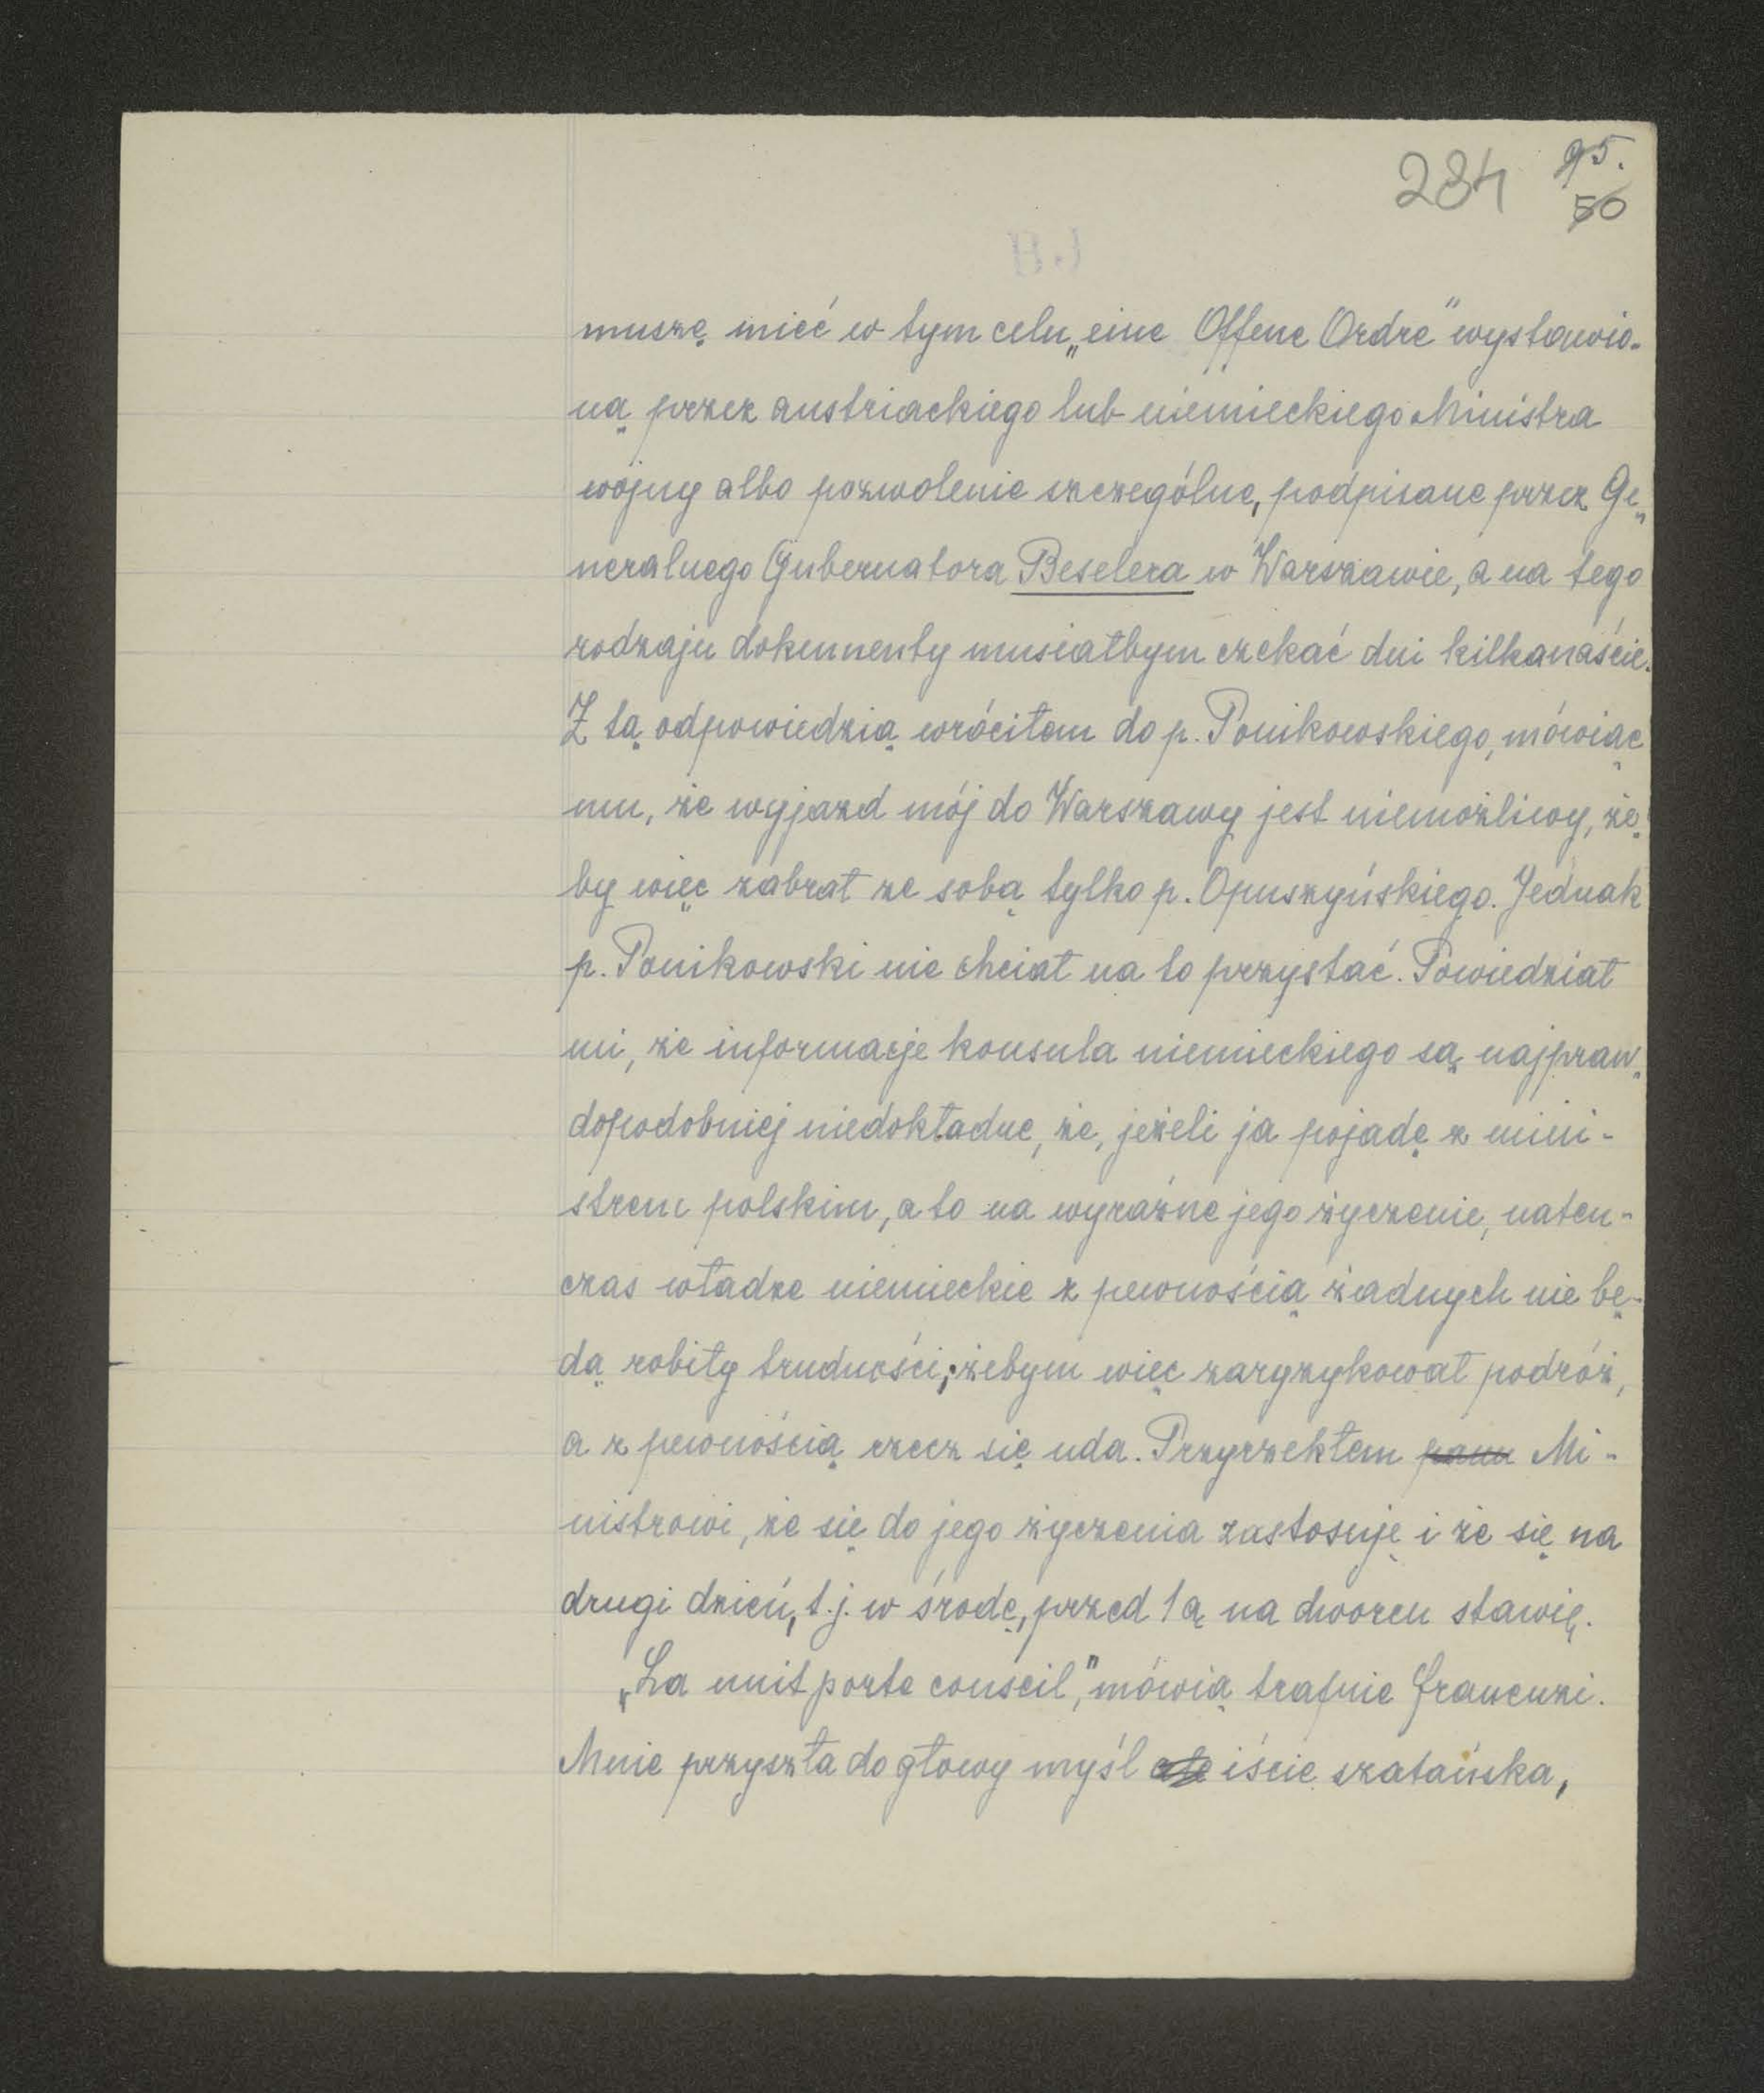 284 95.
50
muszę mieć w tym celu „eine Offene Ordre” wystawio-
ną przez austriackiego lub niemieckiego Ministra
wojny albo pozwolenie szczególne, podpisane przez Ge„
neralnego Gubernatora Beselera w Warszawie, a na tego
rodzaju dokumenty musiałbym czekać dni kilkanaście.
Z tą odpowiedzią wróciłem do p. Ponikowskiego, mówiąc
mu, że wyjazd mój do Warszawy jest niemożliwy, że„
by więc zabrał ze sobą tylko p. Opuszyńskiego. Jednak
p. Ponikowski nie chciał na to przystać. Powiedział
mi, że informacje konsula niemieckiego są najpraw„
dopodobniej niedokładne, że, jeżeli ja pojadę z mini-
strem polskim, a to na wyraźne jego życzenie, naten-
czas władze niemieckie z pewnością żadnych nie bę-
dą robiły trudności; żebym więc zaryzykował podróż,
a z pewnością rzecz się uda. Przyrzekłem panu Mi-
nistrowi, że się do jego życzenia zastosuję i że się na
drugi dzień, t.j. w środę, przed 1ą na dworcu stawię.
„La nuit porte conseil,” mówią trafnie francuzi.
Mnie przyszła do głowy myśl iście szatańska,